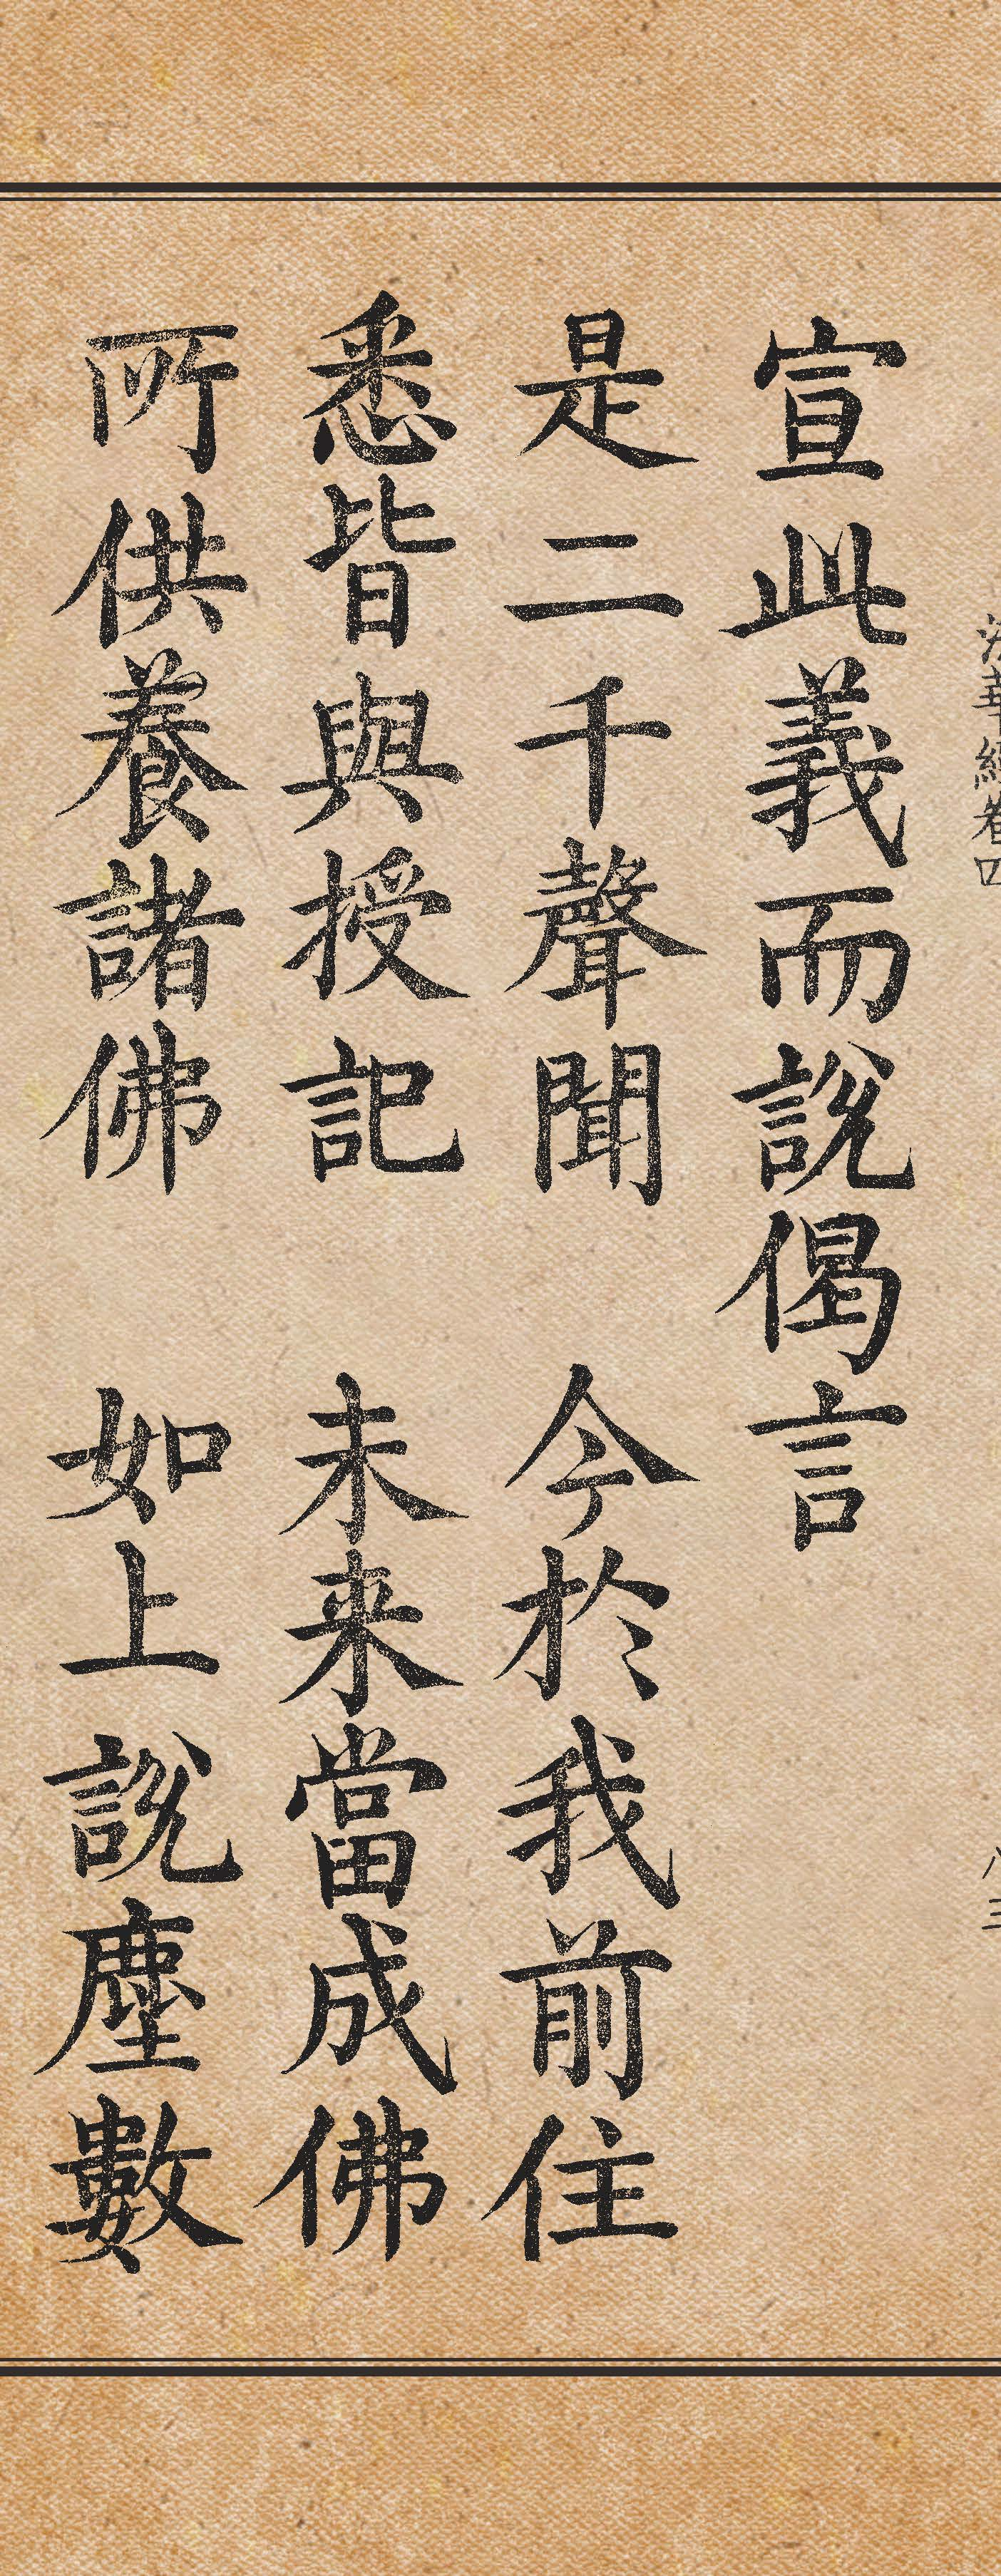 法華經卷四 八三
宣此義而說偈言
是二千聲聞 今於我前住
悉皆與授記 未来當成佛
所供養諸佛 如上說塵數